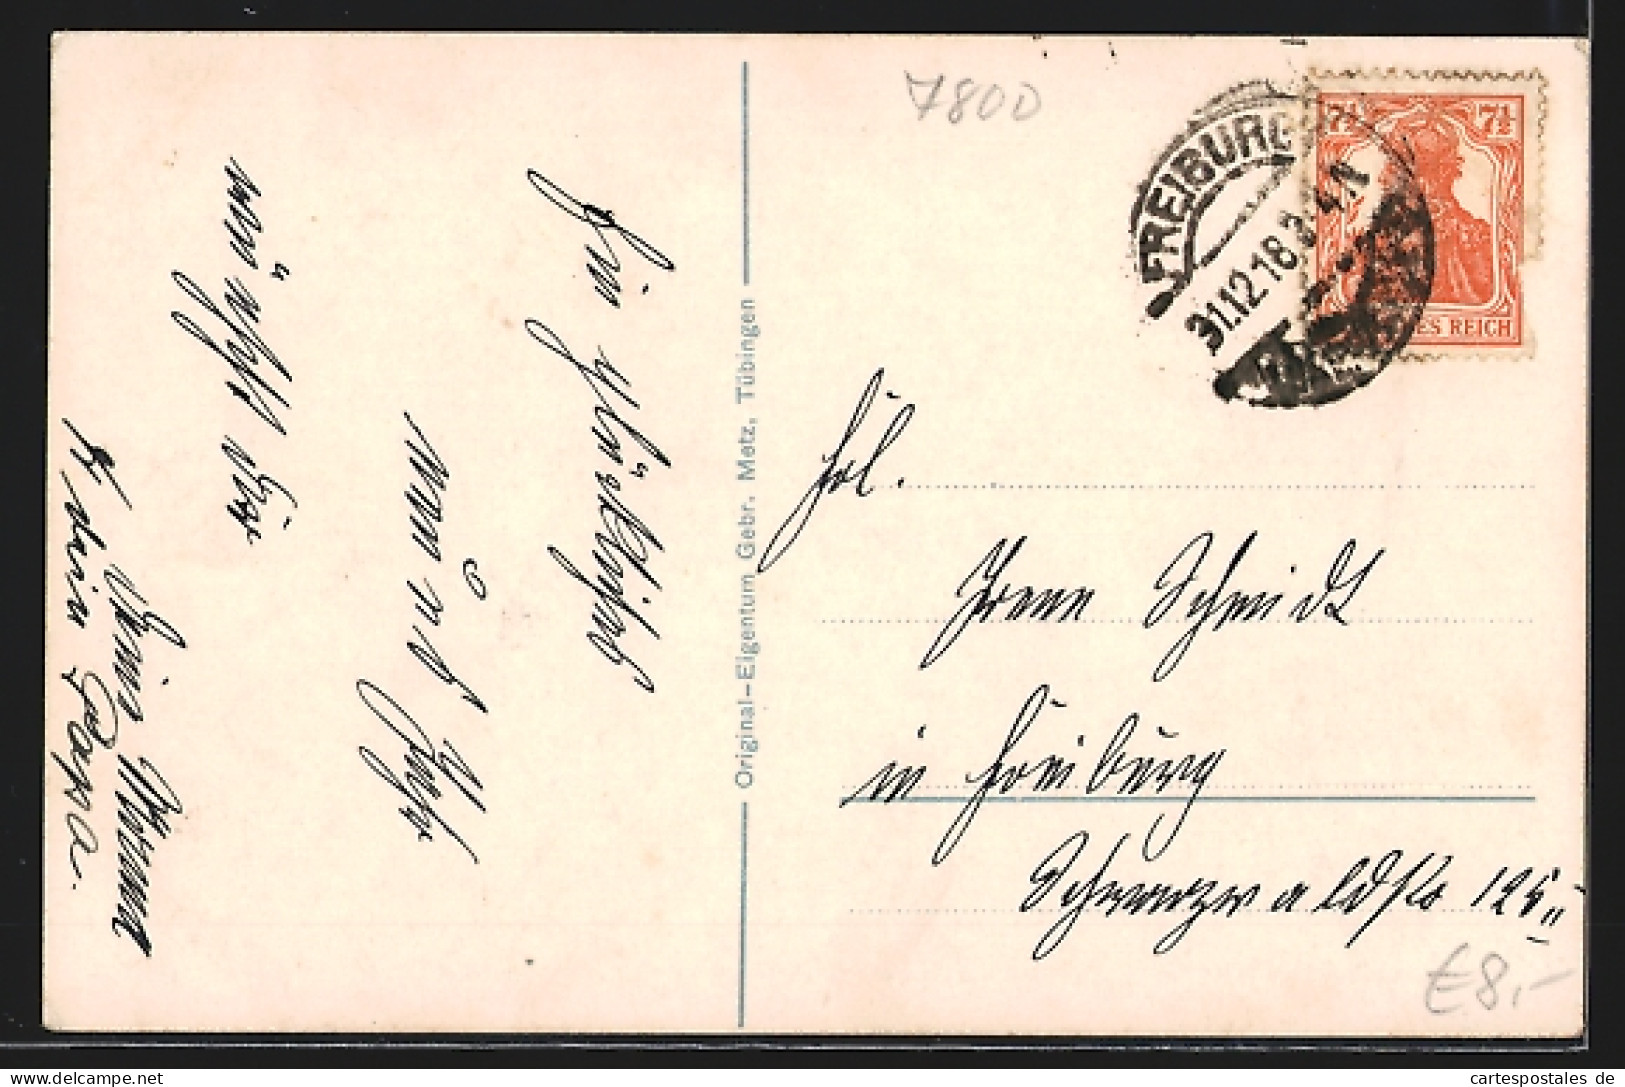 7800
FREIBURG
31.12.18.
7½ 7½
ES REICH
Ein glückliches
neues Jahr
wünscht dir
Deine Mama
& dein Papa.
Original-Eigentum Gebr. Metz, Tübingen
Frl.
Irene Schmidt
in Freiburg
Schwarzwaldstr 125 II
€8,-
cartespostales de